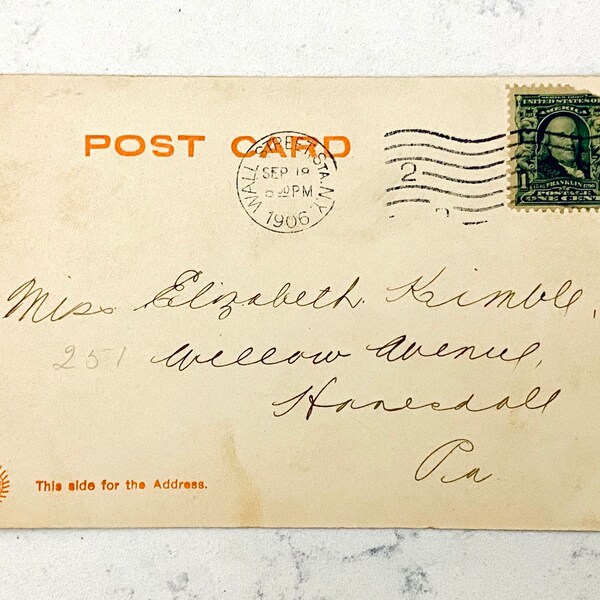 POST CARD
WALL STREET STA. N.Y.
SEP 19
PM
1906
2
1
UNITED STATES OF
AMERICA
FRANKLIN
POSTAGE
ONE CENT
Miss Elizabeth Kimble,
251 Willow Avenue,
Honesdale
Pa
This side for the Address.